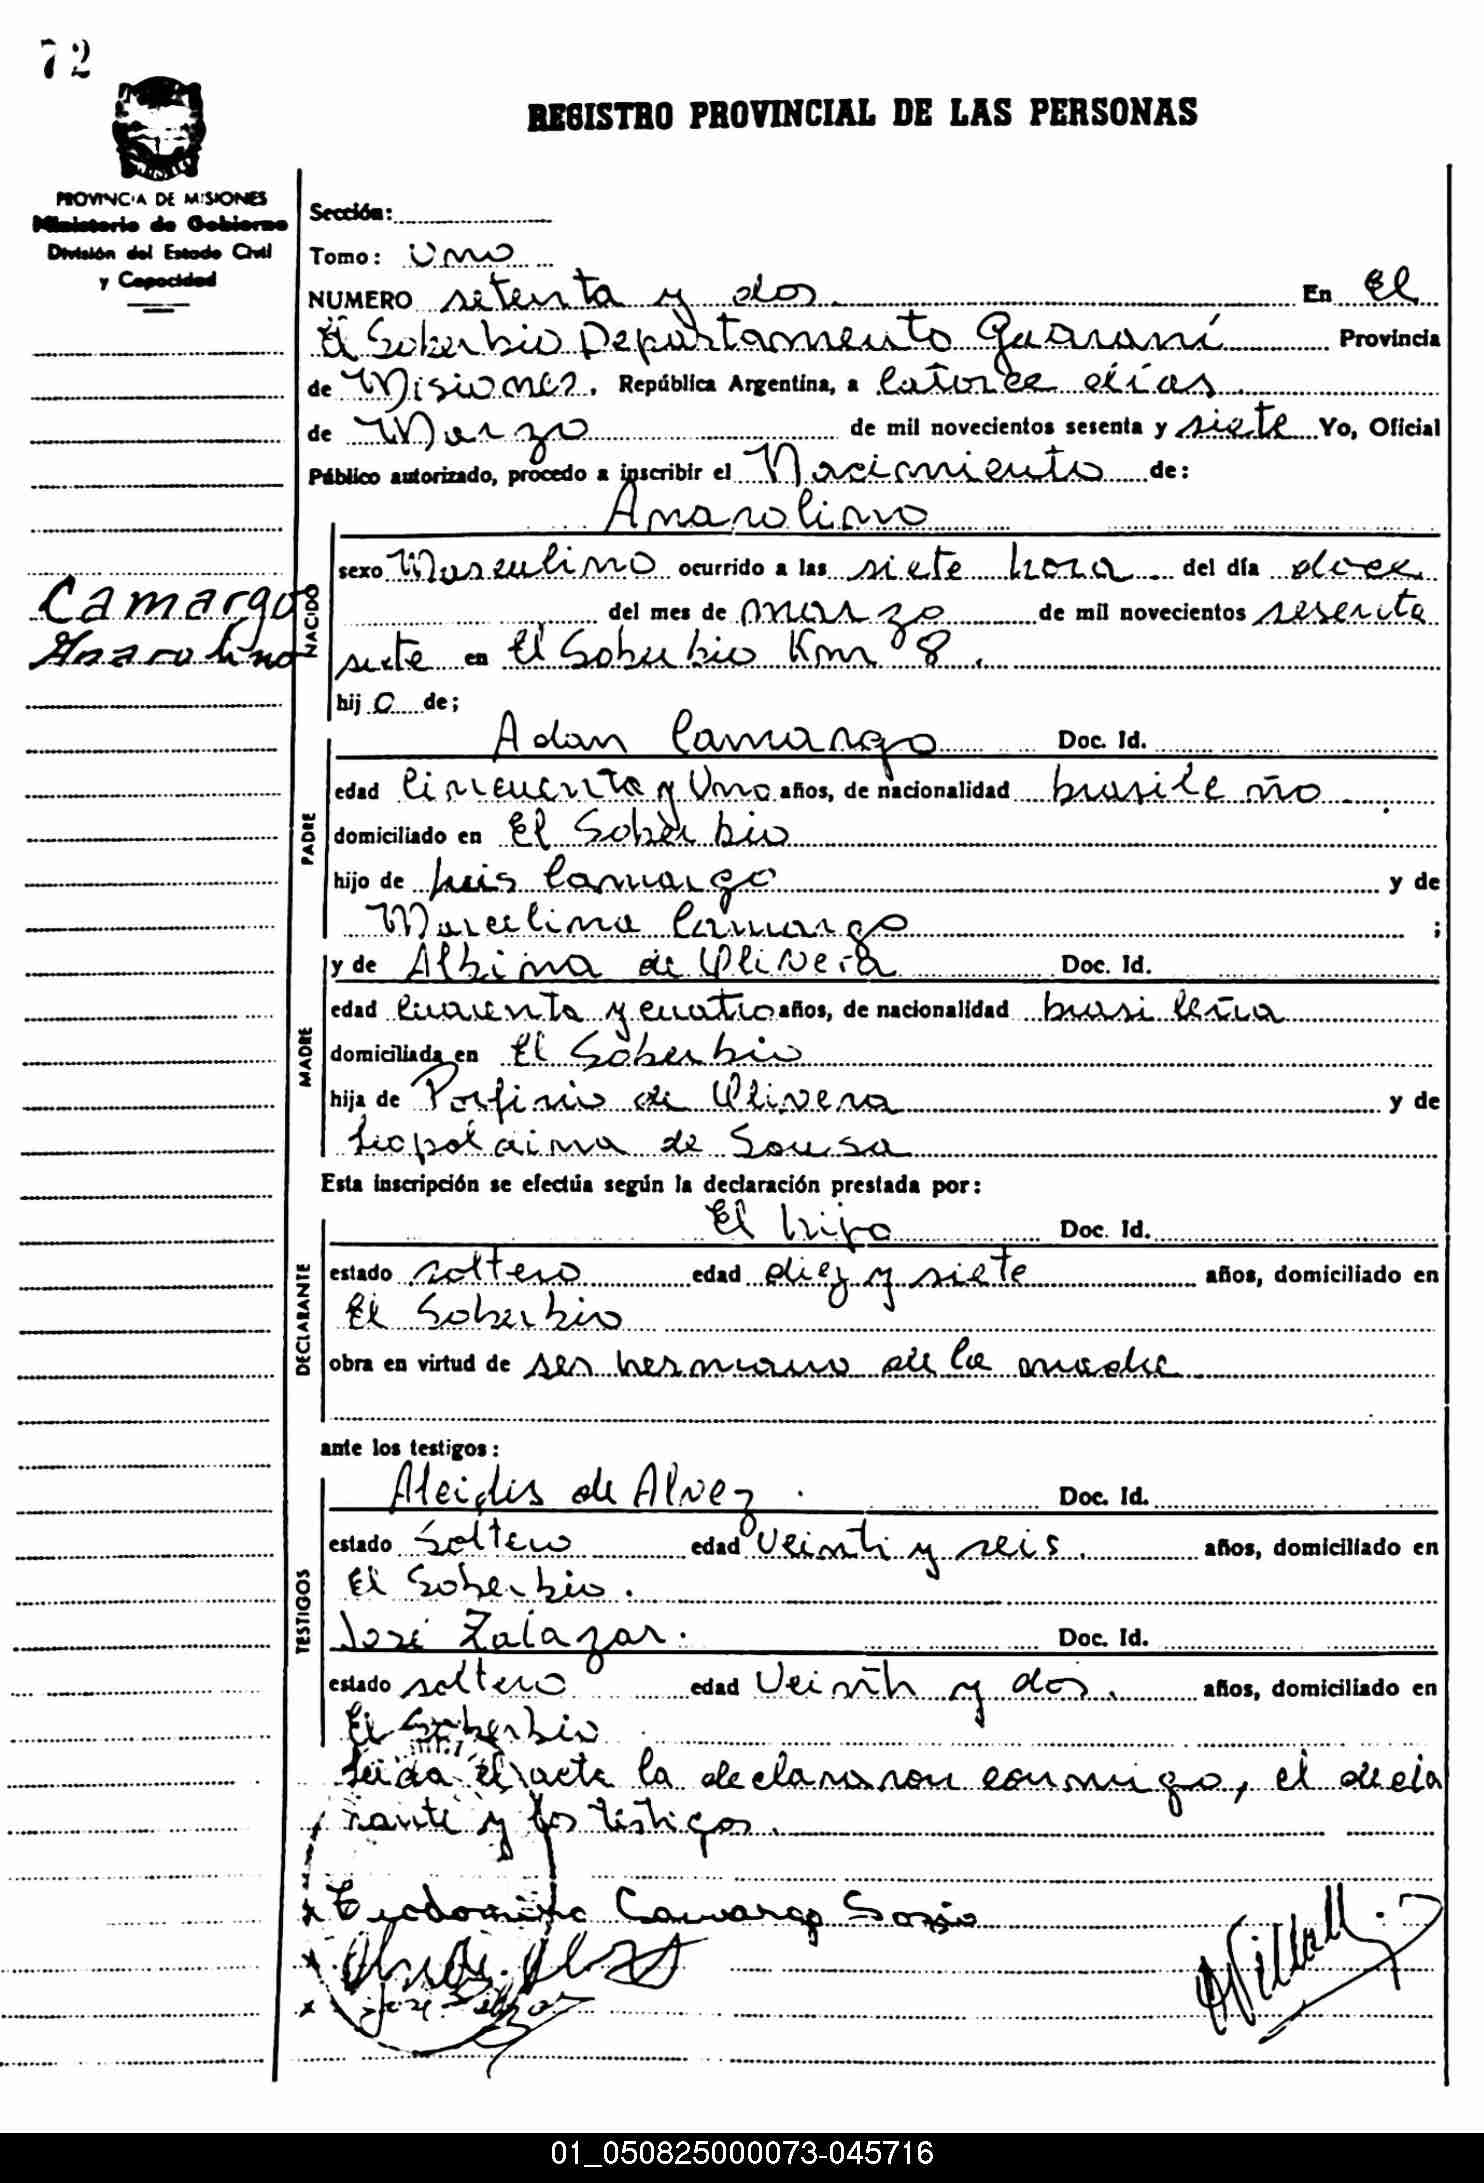 72
REGISTRO PROVINCIAL DE LAS PERSONAS
PROVINCIA DE MISIONES
Ministerio de Gobierno
División del Estado Civil
y Capacidad
Sección:
Tomo: Uno
NUMERO setenta y dos. En El
El Soberbio Departamento Guaraní Provincia
de Misiones. República Argentina, a Catorce días
de Marzo de mil novecientos sesenta y siete Yo, Oficial
Público autorizado, procedo a inscribir el Nacimiento de:
Anarolino
NACIDO
sexo Masculino ocurrido a las siete hora del día doce
Camargo
Anarolino
del mes de marzo de mil novecientos sesenta
siete en El Soberbio Km 8.
hijo de;
PADRE
Adan Camargo Doc. Id.
edad Cincuenta y Uno años, de nacionalidad brasileño
domiciliado en El Soberbio
hijo de Luis Camargo y de
Marcelina Camargo ;
MADRE
y de Albina de Olivera Doc. Id.
edad Cuarenta y cuatro años, de nacionalidad brasileña
domiciliada en El Soberbio
hija de Porfirio de Olivera y de
Leopoldina de Sousa
Esta inscripción se efectúa según la declaración prestada por:
DECLARANTE
El hijo Doc. Id.
estado soltero edad diez y siete años, domiciliado en
El Soberbio
obra en virtud de ser hermano de la madre
ante los testigos:
TESTIGOS
Aleides de Alvez. Doc. Id.
estado Soltero edad Veinti y seis. años, domiciliado en
El Soberbio.
José Zalazar. Doc. Id.
estado soltero edad Veinti y dos. años, domiciliado en
El Soberbio
Leida el acta la declararon conmigo, el decla
rante y los testigos.
Camargo
01_050825000073-045716